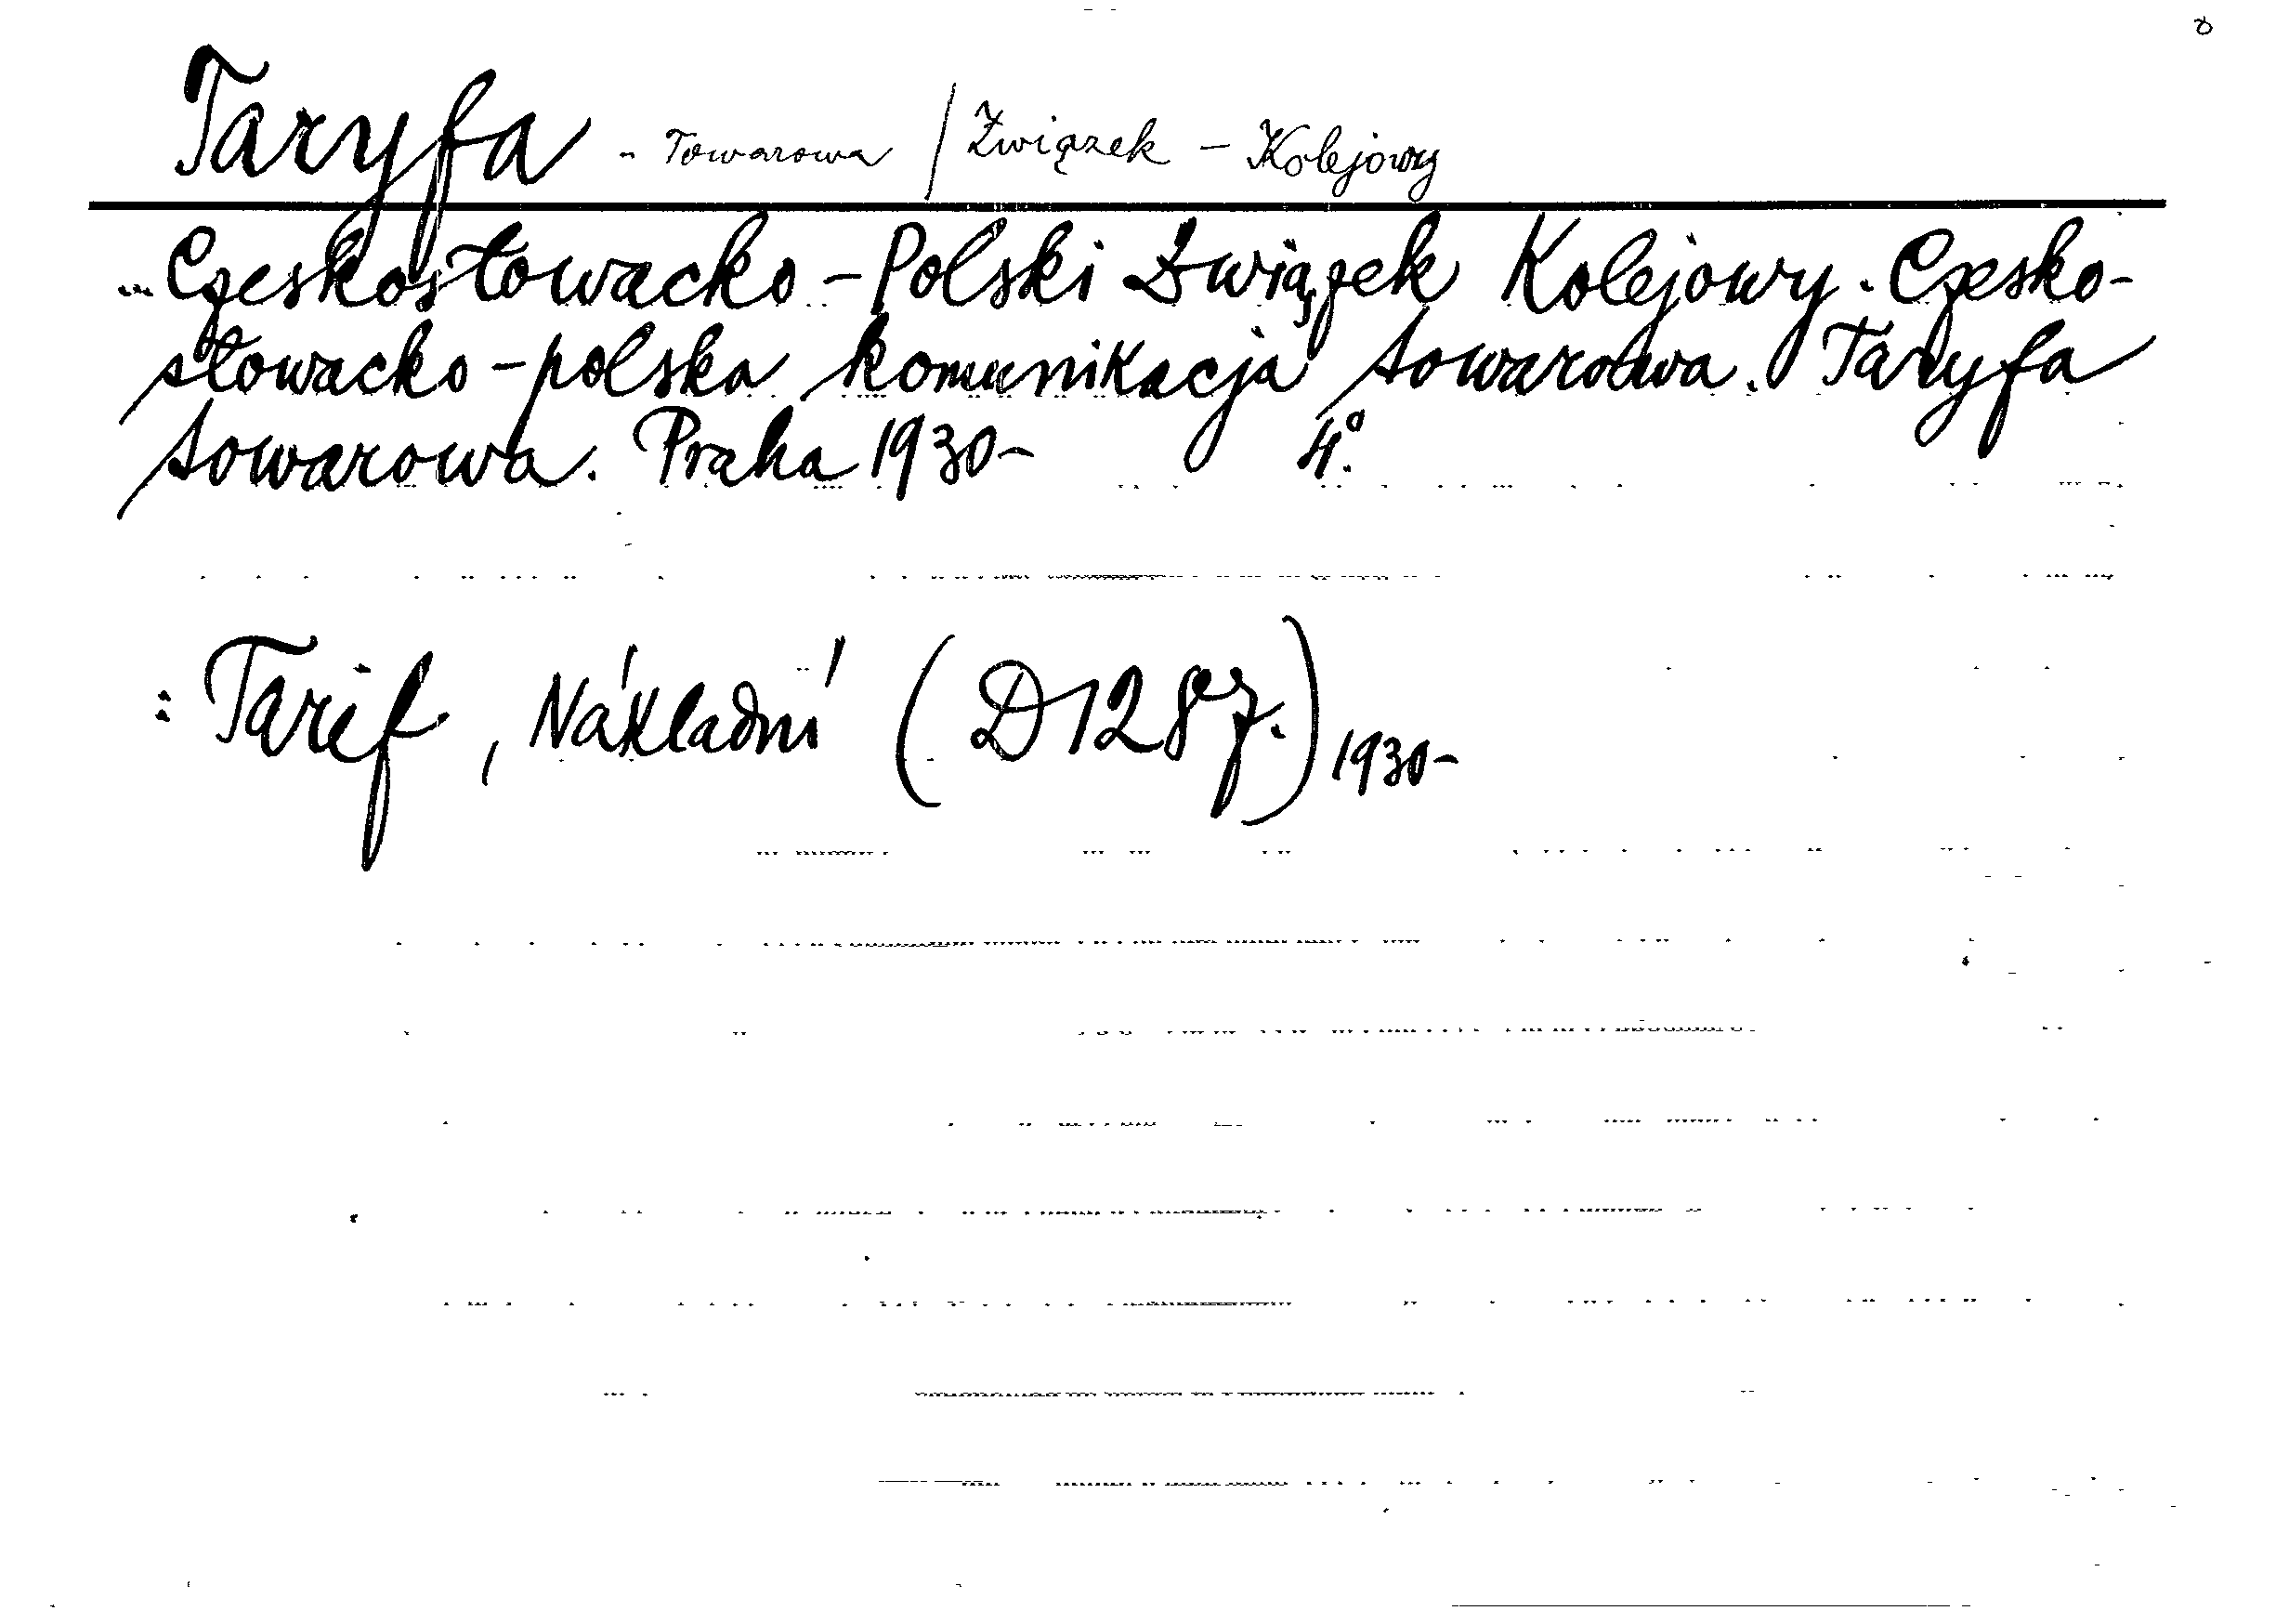 Taryfa - Towarowa / Związek - Kolejowy
... Czeskosłowacko - Polski Związek Kolejowy. Czesko-
słowacko - polska komunikacja towarowa. Taryfa
towarowa. Praha 1930- 4°.
: Tarif, Nákladní (D 1287.) 1930-